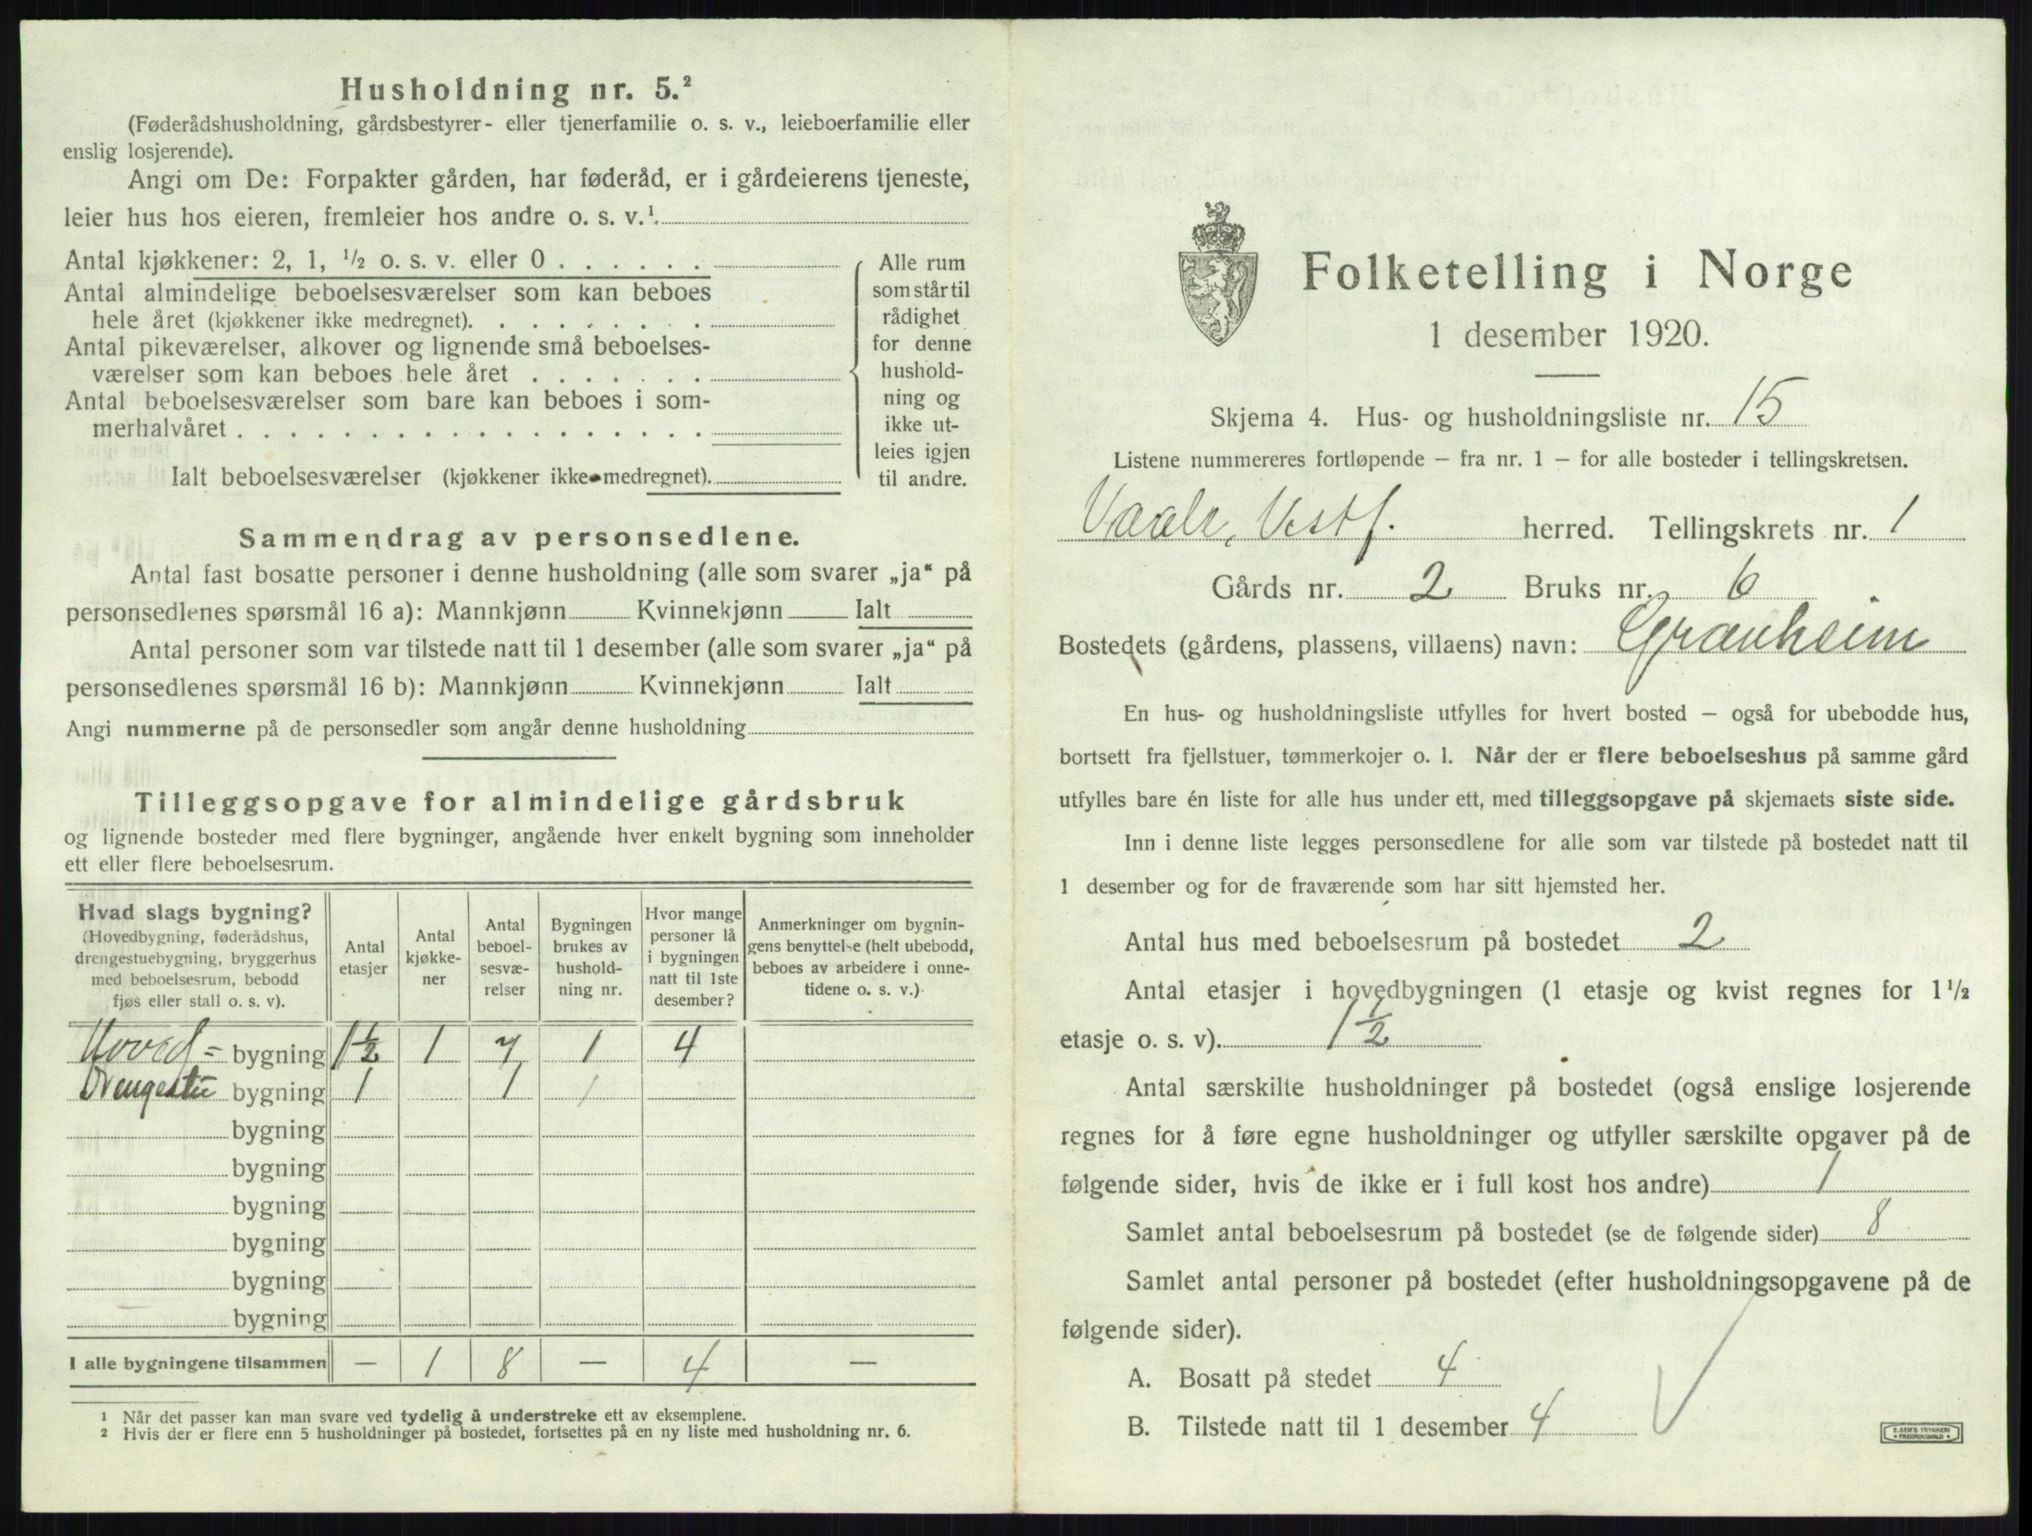 Husholdning nr. 5.²
(Føderådshusholdning, gårdsbestyrer- eller tjenerfamilie o. s. v., leieboerfamilie eller
enslig losjerende).
Angi om De: Forpakter gården, har føderåd, er i gårdeierens tjeneste,
leier hus hos eieren, fremleier hos andre o. s. v.¹.
Antal kjøkkener: 2, 1, ¹/₂ o. s. v. eller 0 . . . . . .
Antal almindelige beboelsesværelser som kan beboes
hele året (kjøkkener ikke medregnet). . . . . . . . .
Antal pikeværelser, alkover og lignende små beboelses-
værelser som kan beboes hele året . . . . . . .
Antal beboelsesværelser som bare kan beboes i som-
merhalvåret . . . . . . . . . . . . . . . . . .
Ialt beboelsesværelser (kjøkkener ikke medregnet).
Alle rum
som står til
rådighet
for denne
hushold-
ning og
ikke ut-
leies igjen
til andre.
Sammendrag av personsedlene.
Antal fast bosatte personer i denne husholdning (alle som svarer „ja“ på
personsedlenes spørsmål 16 a): Mannkjønn Kvinnekjønn Ialt
Antal personer som var tilstede natt til 1 desember (alle som svarer „ja“ på
personsedlenes spørsmål 16 b): Mannkjønn Kvinnekjønn Ialt
Angi nummerne på de personsedler som angår denne husholdning
Tilleggsopgave for almindelige gårdsbruk
og lignende bosteder med flere bygninger, angående hver enkelt bygning som inneholder
ett eller flere beboelsesrum.
Hvad slags bygning?
(Hovedbygning, føderådshus,
drengestuebygning, bryggerhus
med beboelsesrum, bebodd
fjøs eller stall o. s. v).
Antal
etasjer
Antal
kjøkke-
ner
Antal
beboel-
sesvæ-
relser
Bygningen
brukes av
hushold-
ning nr.
Hvor mange
personer lå
i bygningen
natt til 1ste
desember?
Anmerkninger om bygnin-
gens benyttelse (helt ubebodd,
beboes av arbeidere i onne-
tidene o. s. v.)
Hoved= bygning 1½ 1 7 1 4
Drengestu bygning 1 1 1
bygning
bygning
bygning
bygning
bygning
bygning
I alle bygningene tilsammen — 1 8 — 4 —
¹ Når det passer kan man svare ved tydelig å understreke ett av eksemplene.
² Hvis der er flere enn 5 husholdninger på bostedet, fortsettes på en ny liste med husholdning nr. 6.
Folketelling i Norge
1 desember 1920.
Skjema 4. Hus- og husholdningsliste nr. 15
Listene nummereres fortløpende – fra nr. 1 – for alle bosteder i tellingskretsen.
Vaale, Vestf. herred. Tellingskrets nr. 1
Gårds nr. 2 Bruks nr. 6
Bostedets (gårdens, plassens, villaens) navn: Granheim
En hus- og husholdningsliste utfylles for hvert bosted – også for ubebodde hus,
bortsett fra fjellstuer, tømmerkojer o. l. Når der er flere beboelseshus på samme gård
utfylles bare én liste for alle hus under ett, med tilleggsopgave på skjemaets siste side.
Inn i denne liste legges personsedlene for alle som var tilstede på bostedet natt til
1 desember og for de fraværende som har sitt hjemsted her.
Antal hus med beboelsesrum på bostedet 2
Antal etasjer i hovedbygningen (1 etasje og kvist regnes for 1¹/₂
etasje o. s. v). 1½
Antal særskilte husholdninger på bostedet (også enslige losjerende
regnes for å føre egne husholdninger og utfyller særskilte opgaver på de
følgende sider, hvis de ikke er i full kost hos andre) 1
Samlet antal beboelsesrum på bostedet (se de følgende sider) 8
Samlet antal personer på bostedet (efter husholdningsopgavene på de
følgende sider).
A. Bosatt på stedet 4
B. Tilstede natt til 1 desember 4